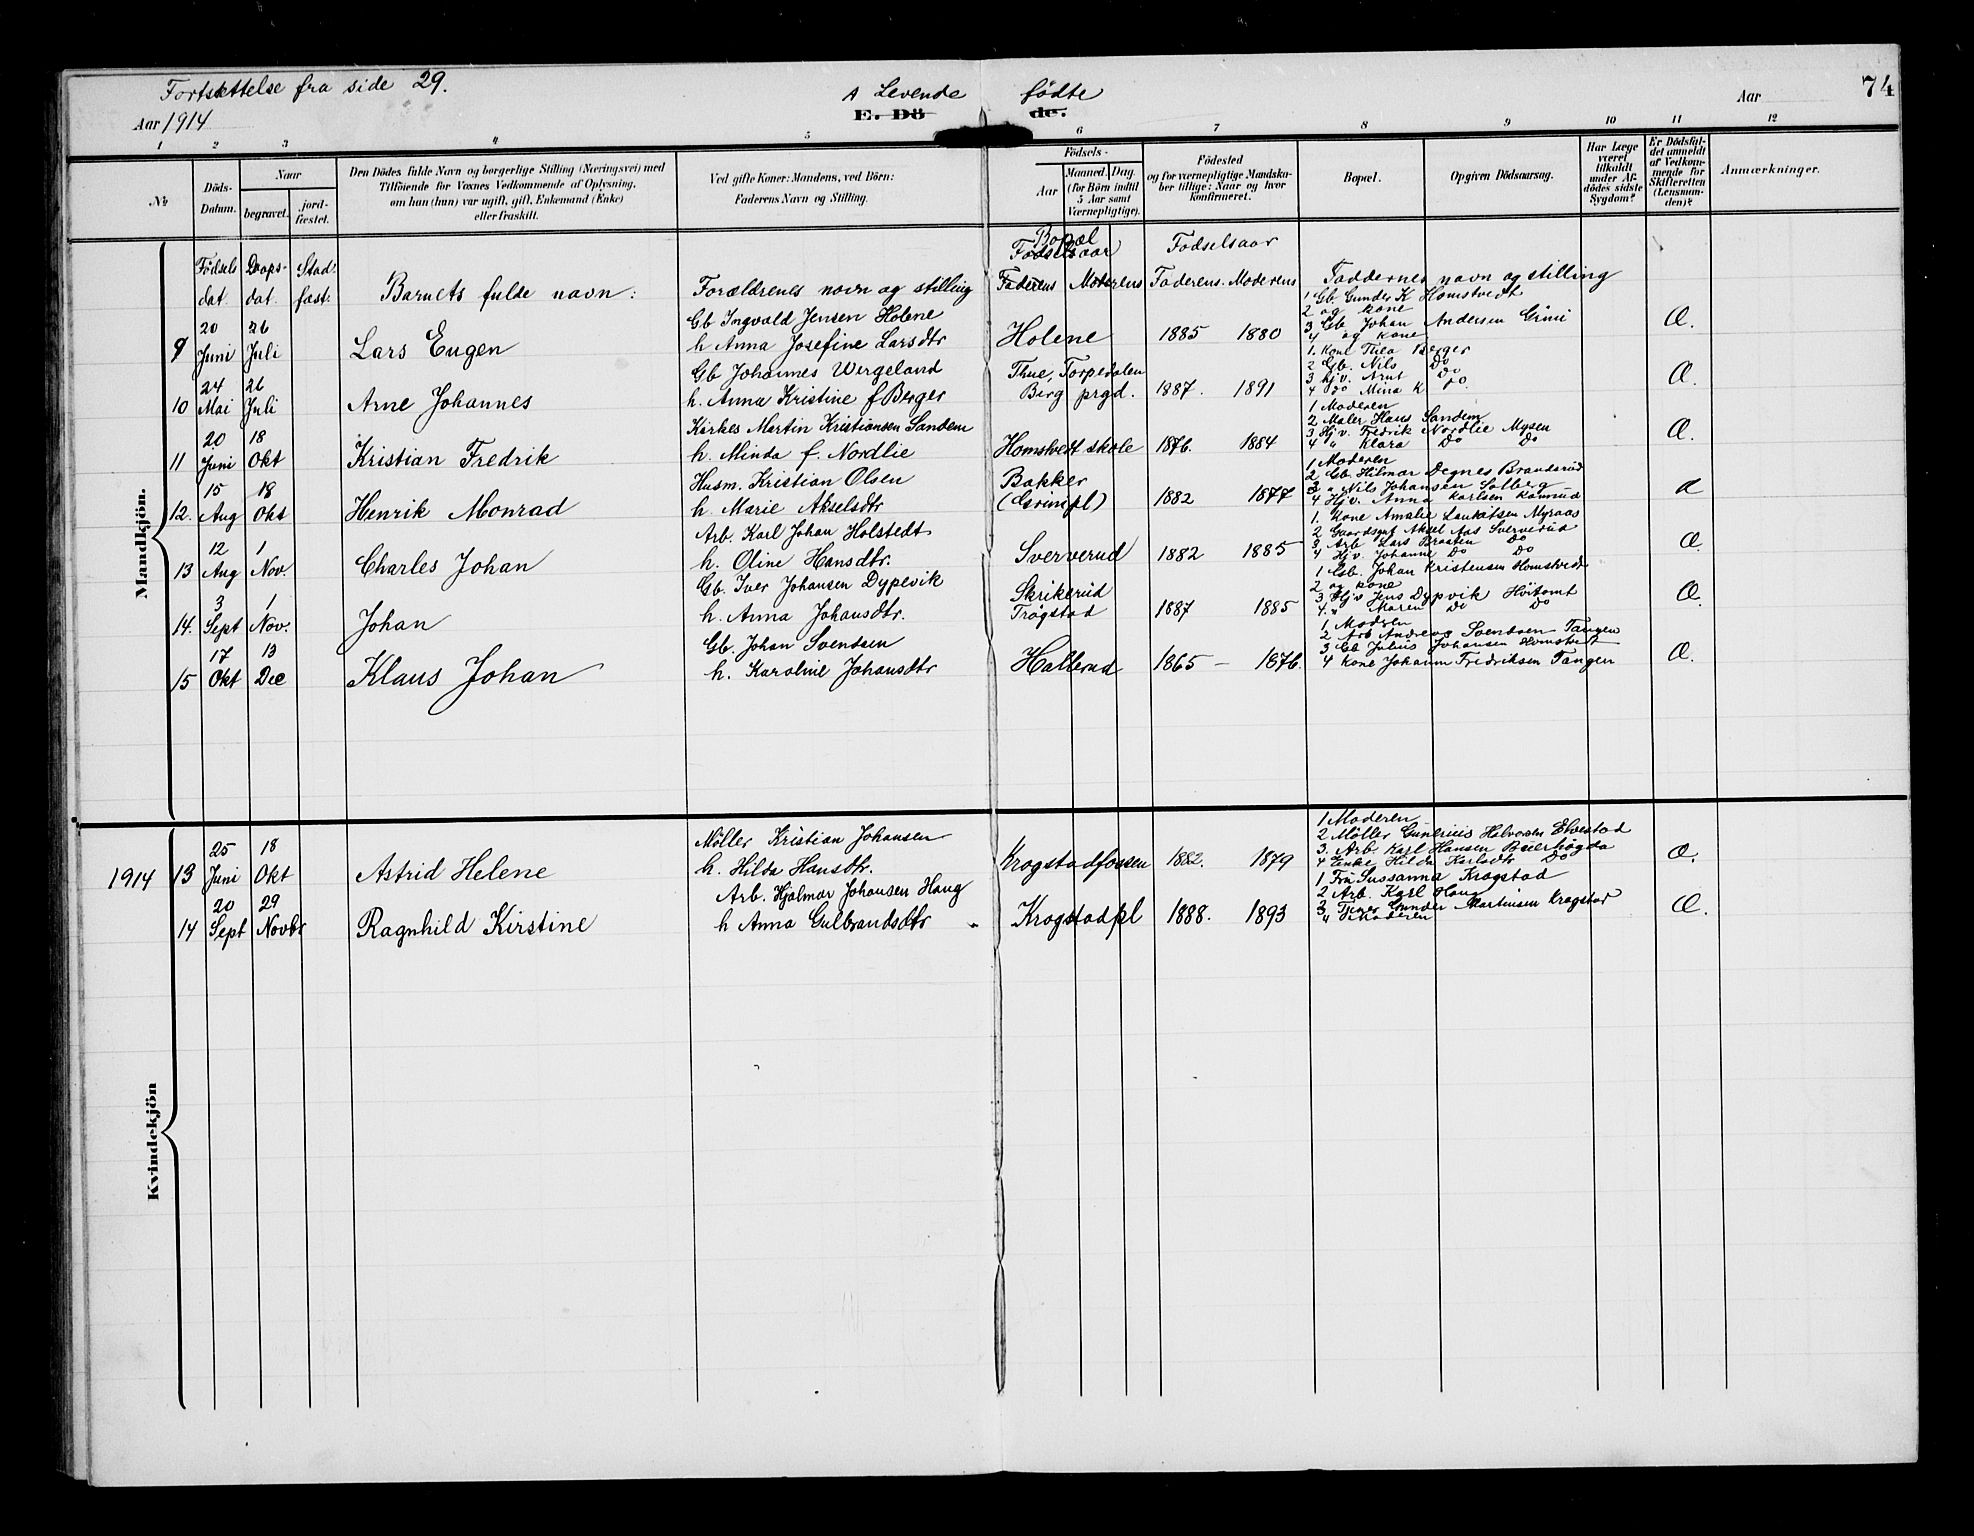 Fortsættelse fra side 29.
A Levende fødte
E. Döde.
74
Aar 1914
Aar
1 2 3 4 5 6 7 8 9 10 11 12
№
Döds-Datum.
Naar
begravet.
jordfæstet.
Den Dödes fulde Navn og borgerlige Stilling (Næringsvei) med
Tilföiende for Voxnes Vedkommende af Oplysning,
om han (hun) var ugift, gift, Enkemand (Enke)
eller fraskilt.
Ved gifte Koner: Mandens, ved Börn:
Faderens Navn og Stilling.
Födsels-
Aar
Maaned. Dag.
(for Börn indtil
5 Aar samt
Værnepligtige).
Födested
og for værnepligtige Mandska-
ber tillige: Naar og hvor
konfirmeret.
Bopæl.
Opgiven Dödsaarsag.
Har Læge
været
tilkaldt
under Af-
dödes sidste
Sygdom?
Er Dödsfal-
det anmeldt
af Vedkom-
mende for
Skifteretten
(Lensman-
den)?
Anmærkninger.
Mandkjön.
Fødsels dat.
Daaps- dat.
Stad. fæst:
Barnets fulde navn:
Forældrenes navn og stilling
Bopæl
Fødselsaar
Faderens Moderens
Fødselsaar
Faderens. Moderens
Faddernes navn og stilling
9
20 Juni
26 Juli
Lars Eugen
Gb Ingvald Jensen Holene
h. Anna Josefine Larsdtr
Holene
1885 1880
1 Gb. Gunder K Homstvedt
2 og kone
3 Gb. Johan Andersen Grini
4 og kone
Æ.
10
24 Mai
26 Juli
Arne Johannes
Gb Johannes Wergeland
h. Anna Kristine f Berger
Thue, Torpedalen
Berg prgd.
1887. 1891
1. Kone Thea Berger
2 Gb. Nils Do
3 hjv. Arnt Do
4 do Mina K do.
Æ.
11
20 Juni
18 Okt
Kristian Fredrik
Kirkes Martin Kristiansen Sandem
h. Minda f. Nordlie
Homstvedt skole
1876. 1884
1 Moderen
2 Maler Hans Sandem
3 Hjv. Fredrik Nordlie Mysen
4 " Klara Do Do
Æ.
12.
15 Aug
18 Okt
Henrik Monrad
Husm. Kristian Olsen
h. Marie Akselsdtr
Bakker
(Grinipl)
1882 1877
1 Moderen
2 Gb. Hilmar Degnes Brandsrud
3 " Nils Johansen Solberg
4 Hjv. Anna Karlsen
Æ
13
12 Aug
1 Nov.
Charles Johan
Arb. Karl Johan Holstedt
h. Oline Hansdtr.
Sververud
1882 1885
1. Kone Amalie Lauritsen Myraas
2 Gaardsmt Aksel Aas Sververud
3 Arb Lars Braaten Do
4 Hjv. Johanne Do Do
Æ.
14.
3 Sept
1 Nov.
Johan
Gb. Iver Johansen Dypevik
h. Anna Johansdtr.
Skrikerud
Trøgstad
1887 1885
1 Gb. Johan Kristensen Homstvedt
2 og kone
3 Hjv Jens Dypvik Høitomt
4. " Maren Do Do
Æ.
15
17 Okt
13 Dec
Klaus Johan
Gb. Johan Svendsen
h. Karoline Johansdtr
Hallerud
1865 – 1876.
1 Moderen
2 Arb Andreas Svendsen Tangen
3 Gb Julius Johansen Homstvet
4 Kone Johann Fredriksen Tangen
Æ.
Kvindekjön
1914
13
25 Juni
18 Okt
Astrid Helene
Møller Kristian Johansen
h. Hilda Hansdtr.
Krogstadfossen
1882. 1879
1 Moderen
2 Møller Halvorsen Elvestad
3. Arb. Karl Hansen Beierhøgda
4 Enke Hilda Karlsdtr Do
Æ.
14
20 Sept
29 Novbr
Ragnhild Kirstine
Arb. Hjalmar Johansen Haug
h Anna Gulbrandsdtr
Krogstadpl
1888. 1893
1 Fru Sussanna Krogstad
2 Arb. Karl Haug
3 Gunder Martinsen Krogstad
4 Moderen
Æ.